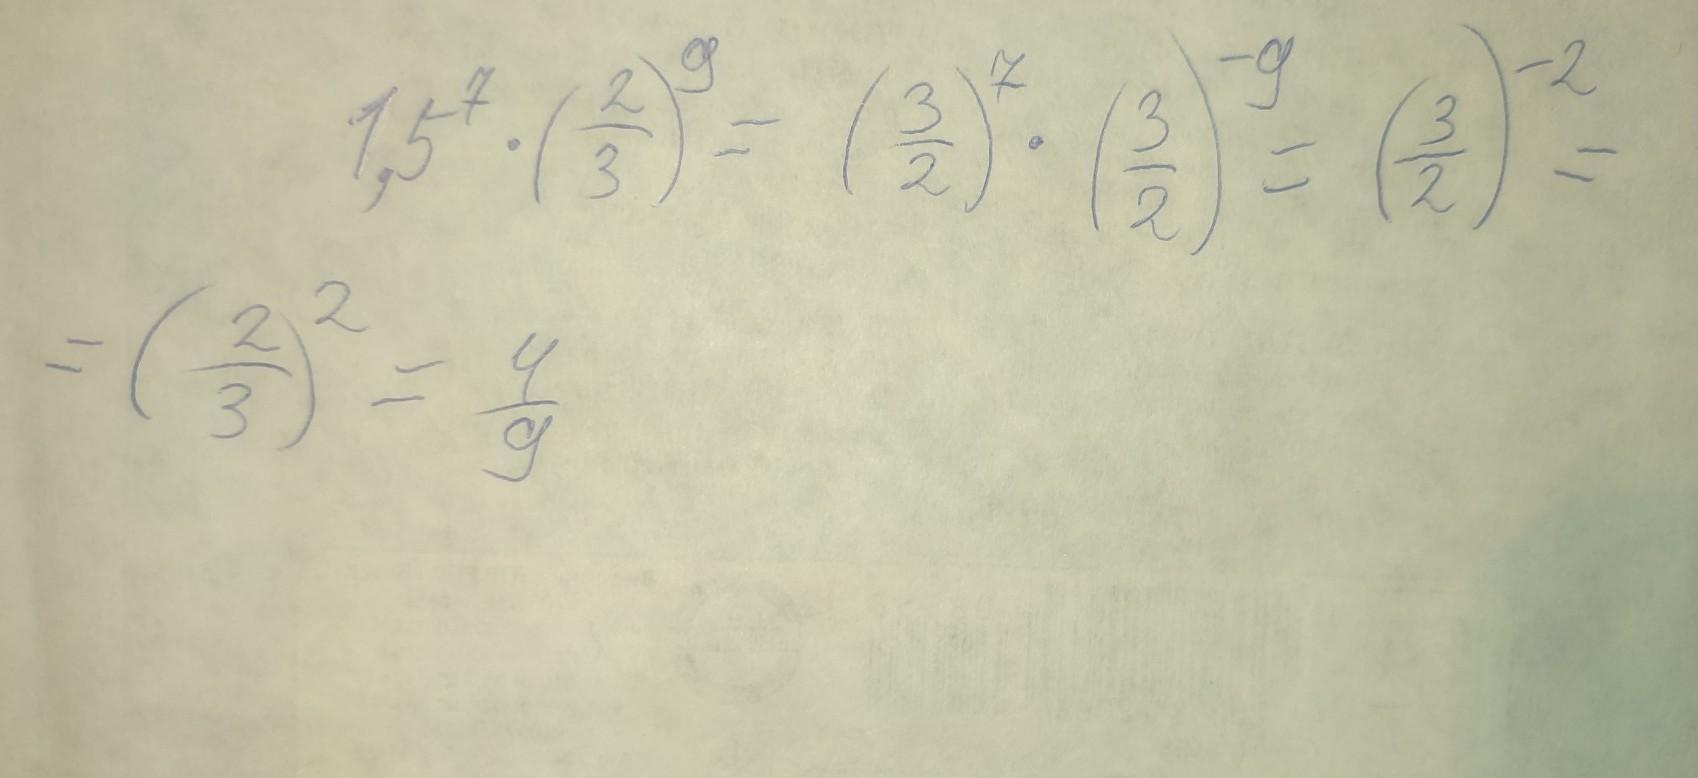 1,5⁷ · (2/3)⁹ = (3/2)⁷ · (3/2)⁻⁹ = (3/2)⁻² =
= (2/3)² = 4/9